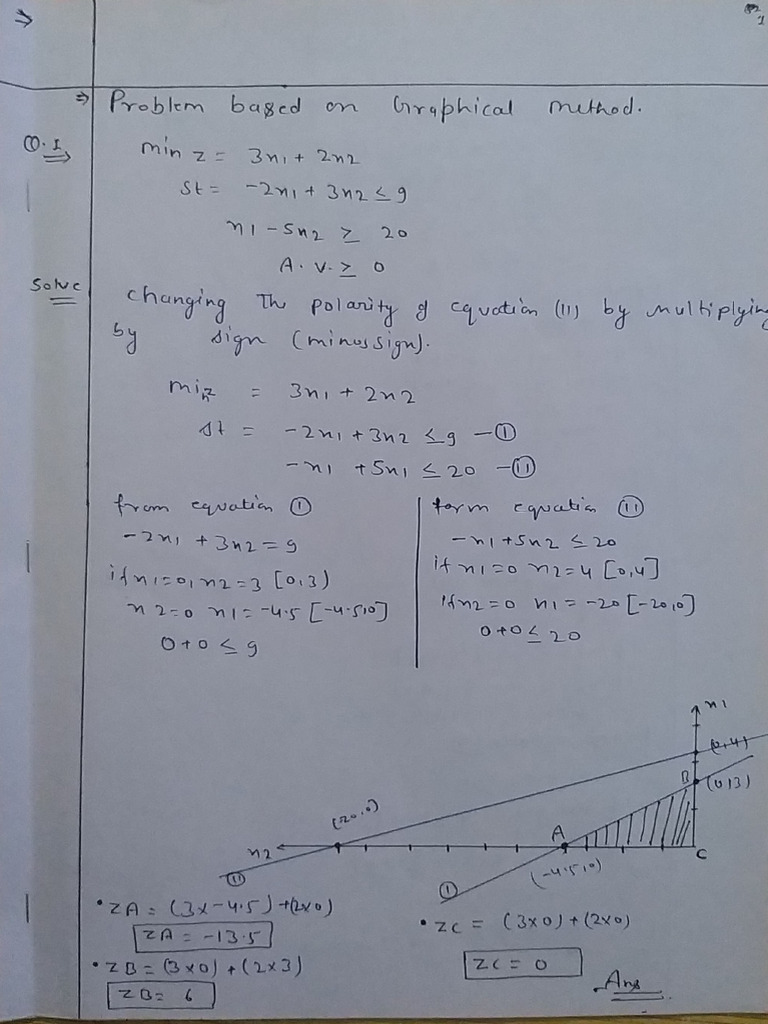 ⇒
1
⇒ Problem based on Graphical method.
Q.1
min z = 3n1 + 2n2
St = -2n1 + 3n2 ≤ 9
n1 - 5n2 ≥ 20
A. V. ≥ 0
Solve
changing The polarity of equation (11) by multiplying
by sign (minus sign).
min z = 3n1 + 2n2
st = -2n1 + 3n2 ≤ 9 - ①
-n1 + 5n1 ≤ 20 - ⑪
from equation ①
-2n1 + 3n2 = 9
if n1=0, n2=3 [0,3)
n2=0 n1=-4.5 [-4.5,0]
0+0 ≤ 9
form equation ⑪
-n1 + 5n2 ≤ 20
if n1=0 n2=4 [0,4]
if n2=0 n1=-20 [-20,0]
0+0 ≤ 20
n1
(0,4)
B (0,3)
(20,0)
A
n2
C
(-4.5,0)
⑪
①
• ZA = (3x-4.5)+(2x0)
ZA = -13.5
• ZB = (3x0) + (2x3)
ZB = 6
• ZC = (3x0) + (2x0)
ZC = 0
Ans